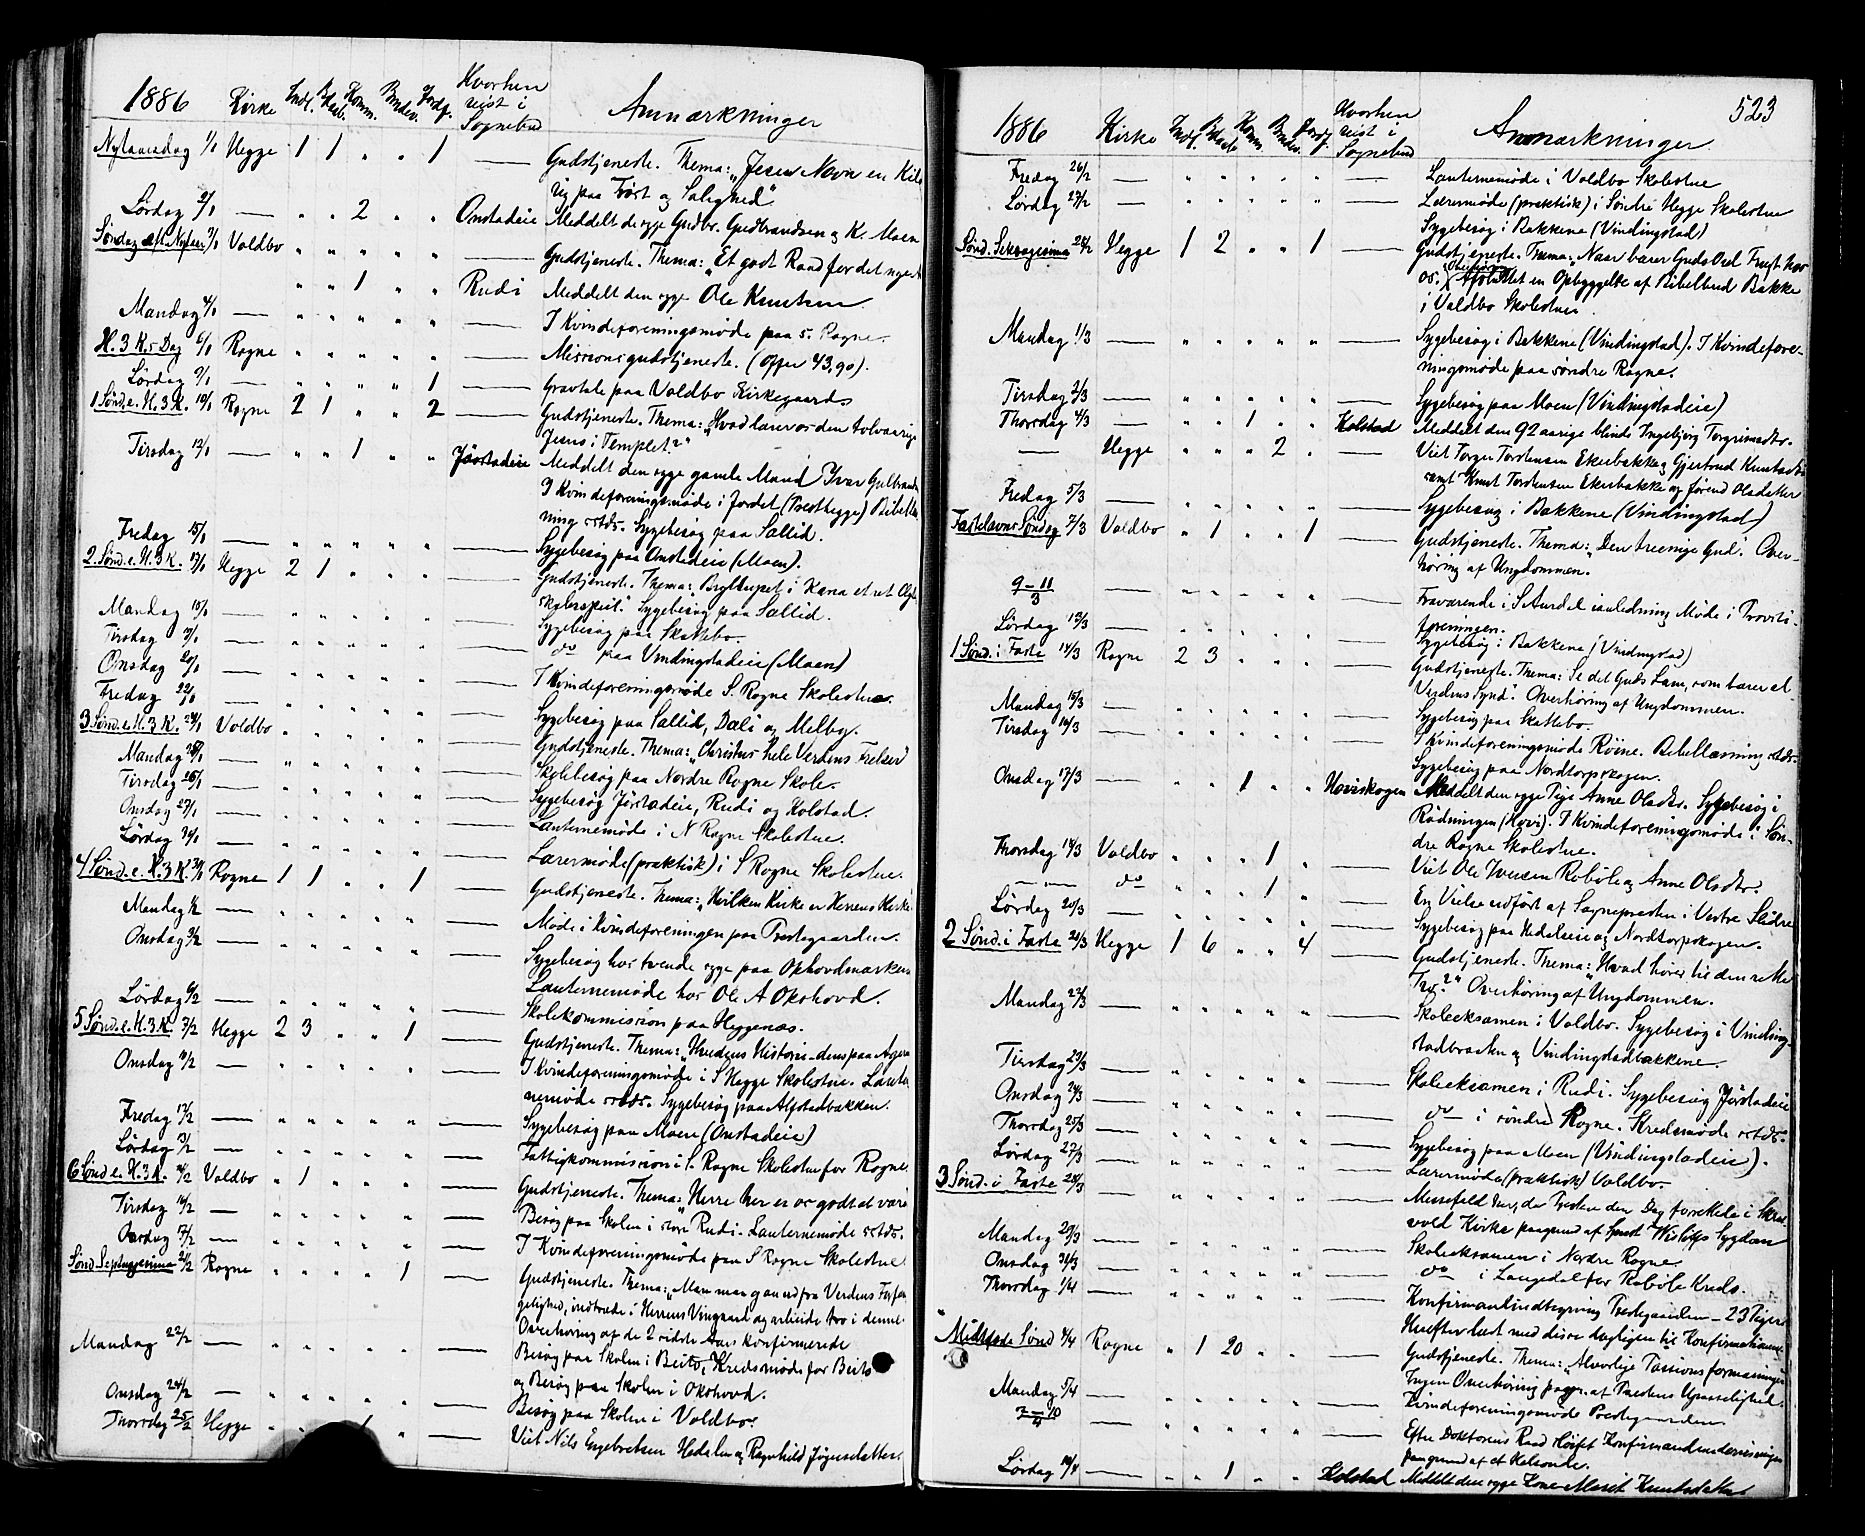 1886 Kirke Indl. Daab. Komm. Brudev. Jordf. Hvorhen reist i Sognebud Anmærkninger
Nytaarsdag 1/1 Hegge 1 1 " " 1 — Gudstjeneste. Thema: „Jesu Navn en Kil-
paa Trøst og Salighed"
Lørdag 2/1 — " " 2 " " Onstadeie Meddelt de syge Gudbr. Gudbrandsen og K. Moen
Søndag eft. Nytaar 3/1 Voldbo " " " " " — Gudstjeneste. Thema: „Et godt Raad for det nye
" " 1 " " Rudi Meddelt den syge Ole Knutsen
Mandag 4/1 — " " " " " — I Kvindeforeningsmøde paa S. Rogne.
H. 3 K.s Dag 6/1 Rogne " " " " " — Missionsgudstjeneste. (Offer 43,90).
Lørdag 9/1 — " " " " 1 — Gravtale paa Voldbo Kirkegaard
1 Sønd. e. H. 3 K. 10/1 Rogne 2 1 " " 2 — Gudstjeneste. Thema: „Hvad lærer os den tolvaarige
Jesus i Templet?"
Tirsdag 12/1 — " " 1 " " Jørstadeie Meddelt den syge gamle Mand Iver Gulbrands
I Kvindeforeningsmøde i Jordet (Presthegge) Bibellæs-
ning sstds. Sygebesøg paa Sallid.
Fredag 15/1 — " " " " " — Sygebesøg paa Onstadeie (Moen).
2 Sønd. e. H. 3 K. 17/1 Hegge 2 1 " " " — Gudstjeneste. Thema: „Bryllupet i Kana et ret Ægte-
skabsspeil." Sygebesøg paa Sallid.
Mandag 18/1 — " " " " " — Sygebesøg paa Skattebo.
Tirsdag 19/1 — " " " " " — do paa Vindingstadeie (Moen)
Onsdag 20/1 — " " " " " — I Kvindeforeningsmøde S. Rogne Skolestue.
Fredag 22/1 — " " " " " — Sygebesøg paa Sallid, Dæli og Melby.
3 Sønd. e. H. 3 K. 24/1 Voldbo " " " " " — Gudstjeneste. Thema: „Christus hele Verdens Frelser
Mandag 25/1 — " " " " " — Skolebesøg paa Nordre Rogne Skole.
Tirsdag 26/1 — " " " " " — Sygebesøg Jørstadeie, Rudi og Kolstad.
Onsdag 27/1 — " " " " " — Lanternemøde i N Rogne Skolestue.
Lørdag 30/1 — " " " " " — Lærermøde (praktisk) i S Rogne Skolestue.
4 Sønd. e. H. 3 K. 31/1 Rogne 1 1 " " 1 — Gudstjeneste. Thema: „Hvilken Kirke er Herrens Kirke
Mandag 1/2 — " " " " " — Møde i Kvindeforeningen paa Prestegaarden.
Onsdag 3/2 — " " " " " — Sygebesøg hos tvende syge paa Okshovdmarken
Lanternemøde hos Ole A Okshovd.
Lørdag 6/2 — " " " " " — Skolekommission paa Heggenæs.
5 Sønd. e. H. 3 K. 7/2 Hegge 2 3 " " 1 — Gudstjeneste. Thema: „Hvedens Historie - dens paa Ageren
Onsdag 10/2 — " " " " " — I Kvindeforeningsmøde i S Hegge Skolestue. Lanter-
nemøde sstds. Sygebesøg paa Alfstadbakken.
Fredag 12/2 — " " " " " — Sygebesøg paa Moen (Onstadeie)
Lørdag 13/2 — " " " " " — Fattigkommission i S. Rogne Skolestue for Rogne.
6 Sønd e. H. 3 K. 14/2 Voldbo " 1 " " " — Gudstjeneste. Thema: „Herre her er os godt at være
Tirsdag 16/2 — " " " " " — Besøg paa Skolen i store Rudi. Lanternemøde sstds.
Onsdag 17/2 — " " " " " — I Kvindeforeningsmøde paa S Rogne Skolestue
Sønd Septuagesima 21/2 Rogne " " " " 1 — Gudstjeneste. Thema: „Man maa gaa ud fra Verdens Forfæn-
gelighed, indtræde i Herrens Vingaard og arbeide tro i denne
Overhøring af de 2 sidste Aars konfirmerede
Mandag 22/2 — " " " " " — Besøg paa Skolen i Beito, Kredsmøde for Beito
og Besøg paa Skolen i Okshovd.
Onsdag 24/2 — " " " " " — Besøg paa Skolen i Voldbo.
Thorsdag 25/2 Hegge " " " 1 " — Viet Nils Engebretsen Hedalen og Ragnhild Jørgensdatter.
523
1886 Kirke Indl. Daab. Komm. Brudev. Jordf. Hvorhen reist i Sognebud Anmærkninger
Fredag 26/2 — " " " " " — Lanternemøde i Voldbo Skolestue
Lørdag 27/2 — " " " " " — Lærermøde (praktisk) i Søndre Hegge Skolestue
Sygebesøg i Bakkene (Vindingstad)
Sønd. Seksagesima 28/2 Hegge 1 2 " " 1 — Gudstjeneste. Thema: „Naar bærer Guds Ord Frugt hos
os. Afholdt et en Opbyggelse af Bibelbud Bakke
i Voldbo Skolestue.
Mandag 1/3 — " " " " " — Sygebesøg i Bakkene (Vindingstad). I Kvindefore-
ningsmøde paa søndre Rogne.
Tirsdag 2/3 — " " " " " — Sygebesøg paa Moen (Vindingstadeie)
Thorsdag 4/3 — " " 1 " " Kolstad Meddelt den 92 aarige blinde Ingebjørg Torgrimsdtr.
— Hegge " " " 2 " — Viet Torger Torstensen Ekerbakke og Gjertrud Knutsdtr
samt Knut Torstensen Ekerbakke og Jørend Olsdatter
Fredag 5/3 — " " " " " — Sygebesøg i Bakkene (Vindingstad)
Fastelavns Søndag 7/3 Voldbo " 1 " " 1 — Gudstjeneste. Thema: „Den treenige Gud". Over-
høring af Ungdommen.
9-11/3 — " " " " " — Fraværende i S Aurdal i anledning Møde i Provsti-
foreningen.
Lørdag 13/3 — " " " " " — Sygebesøg i Bakkene (Vindingstad)
1 Sønd. i Faste 14/3 Rogne 2 3 " " " — Gudstjeneste. Thema: Se det Guds Lam, som bærer al
Verdens Synd". Overhøring af Ungdommen.
Mandag 15/3 — " " " " " — Sygebesøg paa Skattebo.
Tirsdag 16/3 — " " " " " — I Kvindeforeningsmøde Røine. Bibellæsning sstds.
Sygebesøg paa Nordtorpskogen.
Onsdag 17/3 — " " 1 " " Hovskogen Meddelt den syge Pige Anne Olsdtr. Sygebesøg i
Rudningen (Hovi). I Kvindeforeningsmøde i Søn-
dre Rogne Skolestue.
Thorsdag 18/3 Voldbo " " " 1 " — Viet Ole Iversen Robøle og Anne Olsdtr.
— do " " " 1 " — En Vielse udført af Sognepresten i Vestre Slidre
Lørdag 20/3 — " " " " " — Sygebesøg paa Hedalseie og Nordtorpskogen.
2 Sønd. i Faste 21/3 Hegge 1 6 " " 4 — Gudstjeneste. Thema: „Hvad hører til den rette
Tro?" Overhøring af Ungdommen.
Mandag 22/3 — " " " " " — Skoleeksamen i Voldbo. Sygebesøg i Vinding-
stadbraaten og Vindingstadbakkene.
Tirsdag 23/3 — " " " " " — Skoleeksamen i Rudi. Sygebesøg Jørstadeie
Onsdag 24/3 — " " " " " — do i søndre Rogne. Kredsmøde sstds.
Thorsdag 25/3 — " " " " " — Sygebesøg paa Moen (Vindingstadeie).
Lørdag 27/3 — " " " " " — Lærermøde (praktisk) Voldbo.
3 Sønd. i Faste 28/3 — " " " " " — Messefald her, da Presten den Dag forrettede i Skrud-
vold Kirke paagrund af Sgpst Wisløffs Sygdom
Mandag 29/3 — " " " " " — Skoleeksamen i Nordre Rogne.
Onsdag 31/3 — " " " " " — do i Laugedal for Robøle Kreds.
Thorsdag 1/4 — " " " " " — Konfirmantindtegning Prestegaarden - 23 Piger
Herefter læst med disse dagligen til Konfirmationen
Midfaste Sønd 4/4 Rogne " 1 20 " " — Gudstjeneste. Thema: „Alvorlige Passionsformaninger
Ingen Overhøring paagr. af Prestens Upasselighed.
Mandag 5/4 — " " " " " — Kvindeforeningsmøde Prestegaarden
7-10/4 — " " " " " — Efter Doktorens Raad Høifet Konfirmandundervisningen
paagrund af et Halsonde.
Lørdag 10/4 — " " 1 " " Kolstad Meddelt den syge Kone Marit Knutsdatter